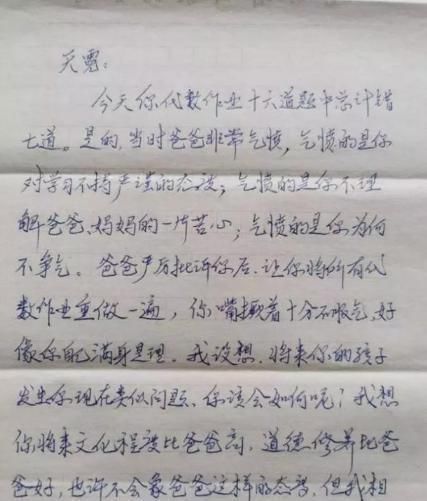 天霓：
今天你代数作业十六道题中总计错
七道。是的，当时爸爸非常气愤，气愤的是你
对学习不持严谨的态度；气愤的是你不理
解爸爸、妈妈的一片苦心；气愤的是你为何
不争气。爸爸严厉批评你后，让你将所有代
数作业重做一遍，你嘴撅着十分不服气，好
像你配满身是理。我设想，将来你的孩子
发生你现在类似问题，你该会如何呢？我想
你将来文化程度比爸爸高，道德修养比爸
爸好，也许不会象爸爸这样的态度，但我相